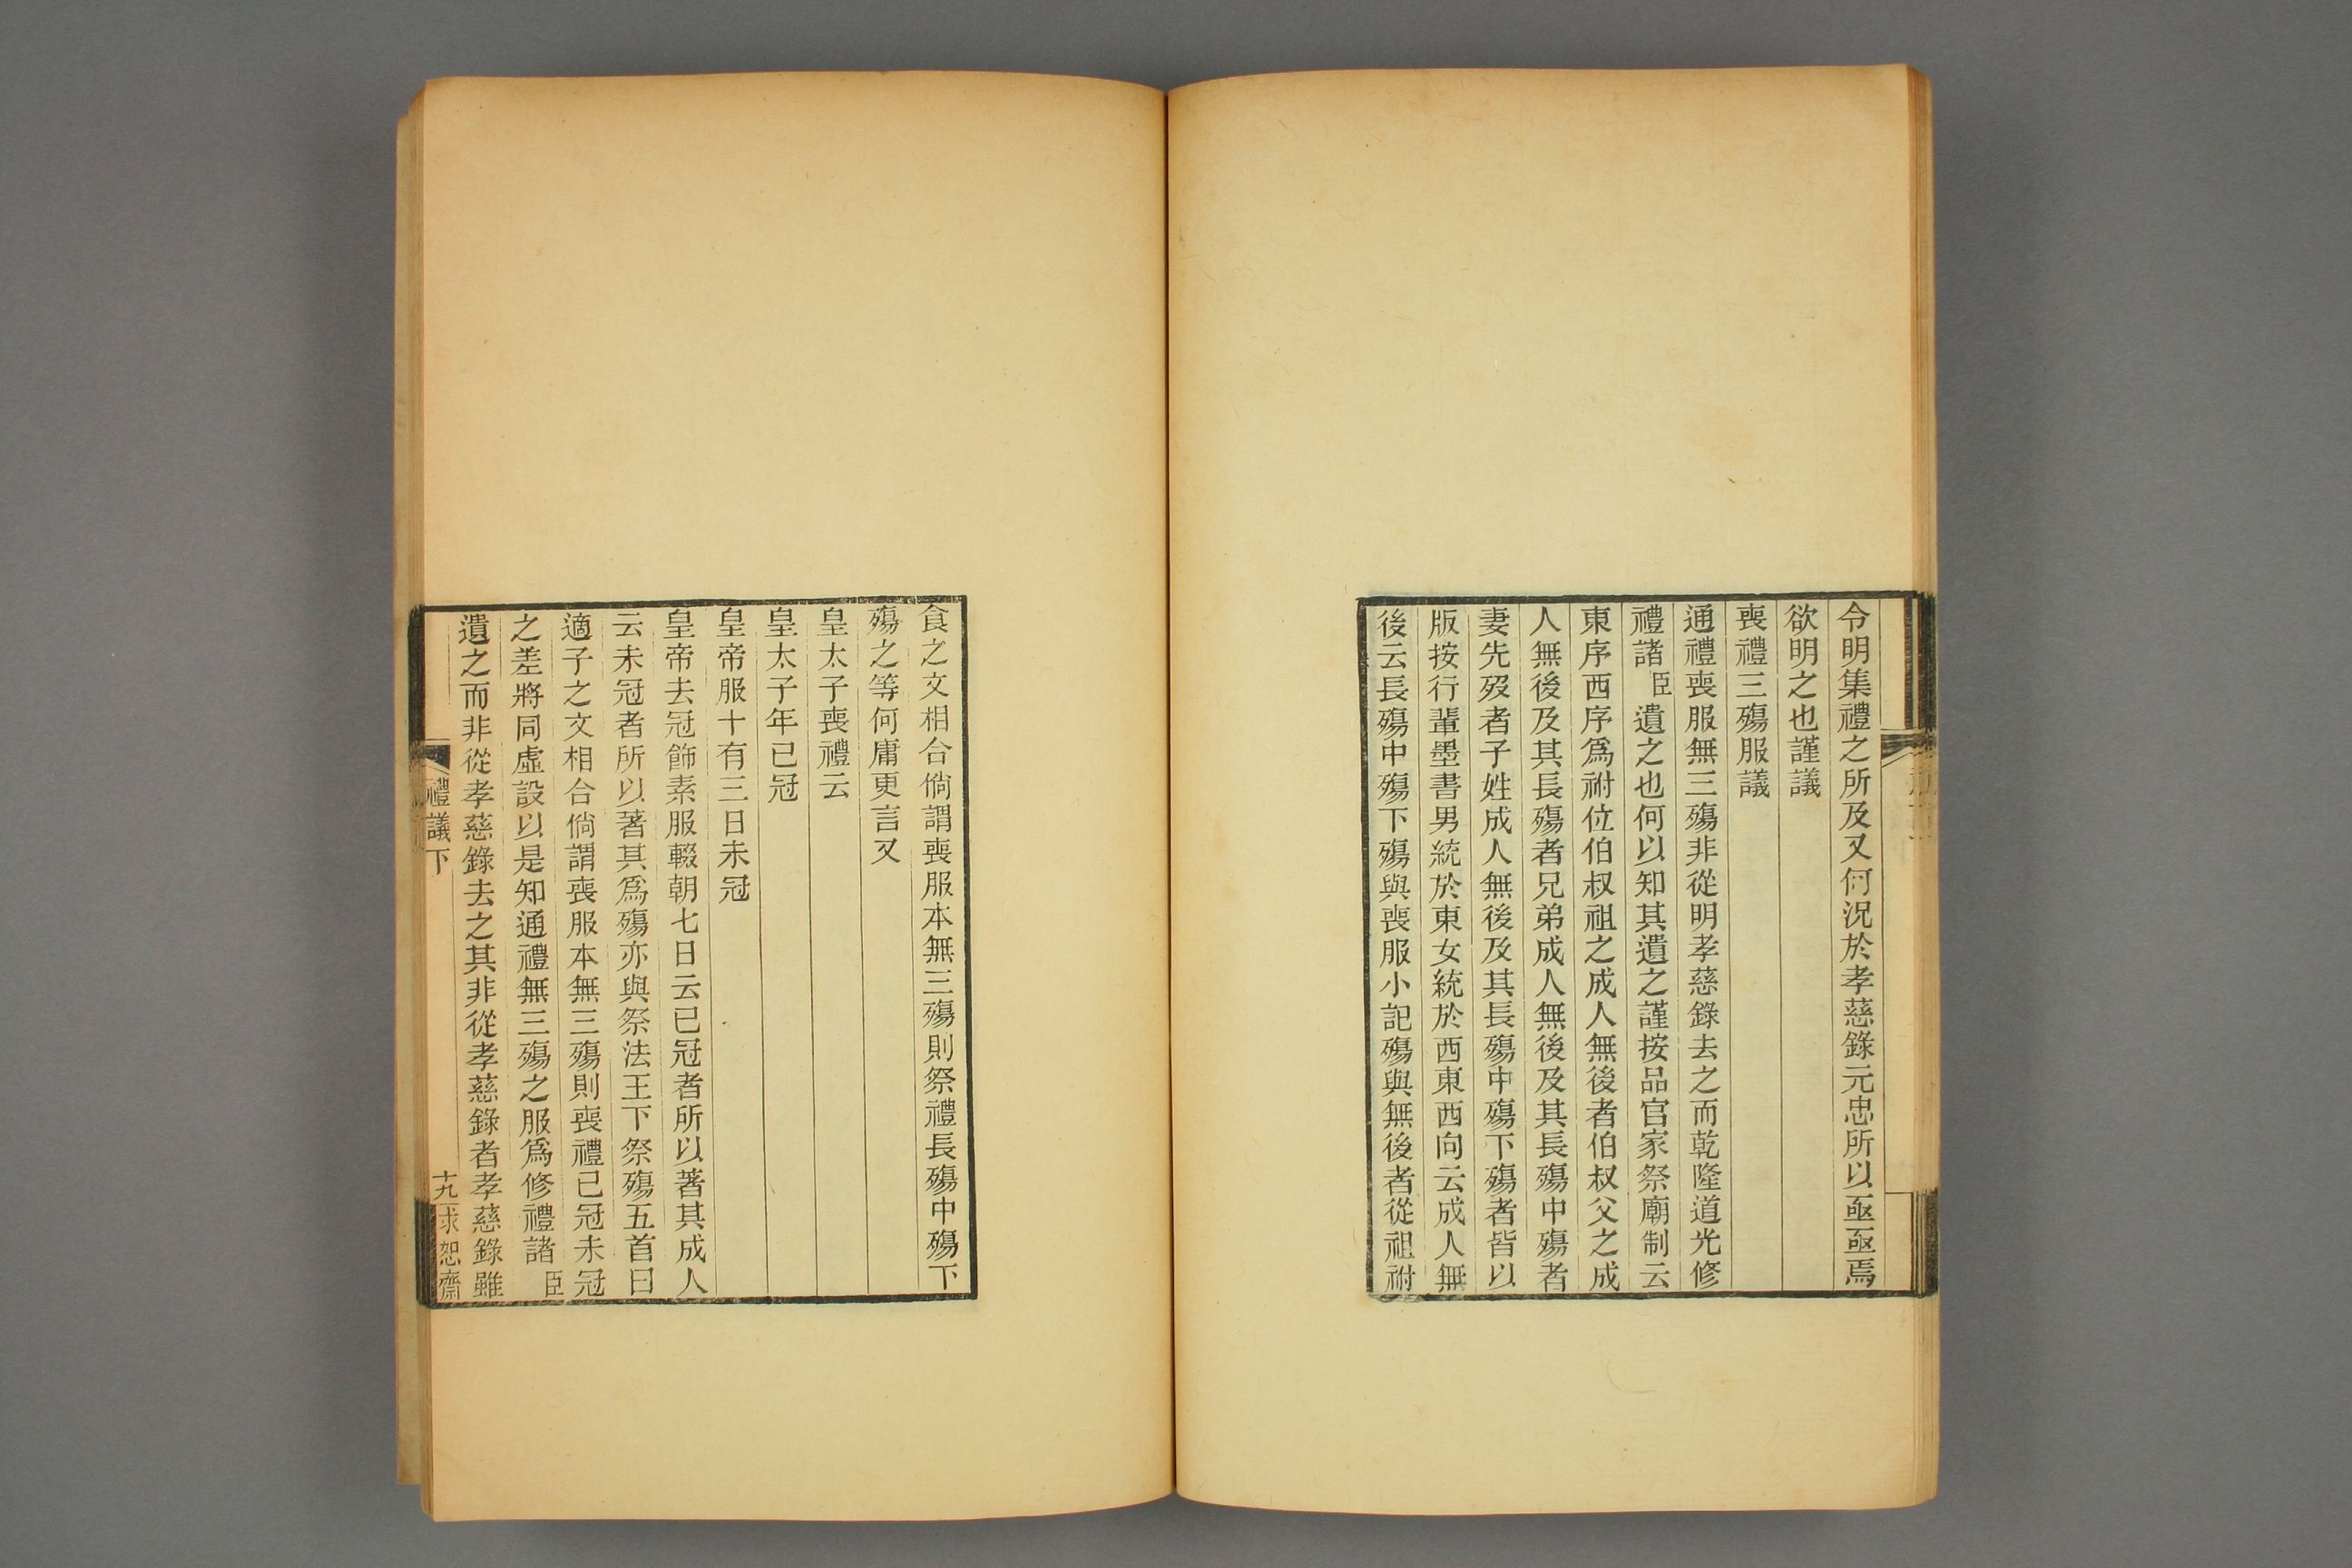 令明集禮之所及又何況於孝慈錄元忠所以亟亟焉
欲明之也謹議
喪禮三殤服議
通禮喪服無三殤非從明孝慈錄去之而乾隆道光修
禮諸臣遺之也何以知其遺之謹按品官家祭廟制云
東序西序爲祔位伯叔祖之成人無後者伯叔父之成
人無後及其長殤者兄弟成人無後及其長殤中殤者
妻先歿者子姓成人無後及其長殤中殤下殤者皆以
版按行輩墨書男統於東女統於西東西向云成人無
後云長殤中殤下殤與喪服小記殤與無後者從祖祔
食之文相合倘謂喪服本無三殤則祭禮長殤中殤下
殤之等何庸更言又
皇太子喪禮云
皇太子年已冠
皇帝服十有三日未冠
皇帝去冠飾素服輟朝七日云已冠者所以著其成人
云未冠者所以著其爲殤亦與祭法王下祭殤五首曰
適子之文相合倘謂喪服本無三殤則喪禮已冠未冠
之差將同虛設以是知通禮無三殤之服爲修禮諸臣
遺之而非從孝慈錄去之其非從孝慈錄者孝慈錄雖
禮議下
十九
求恕齋